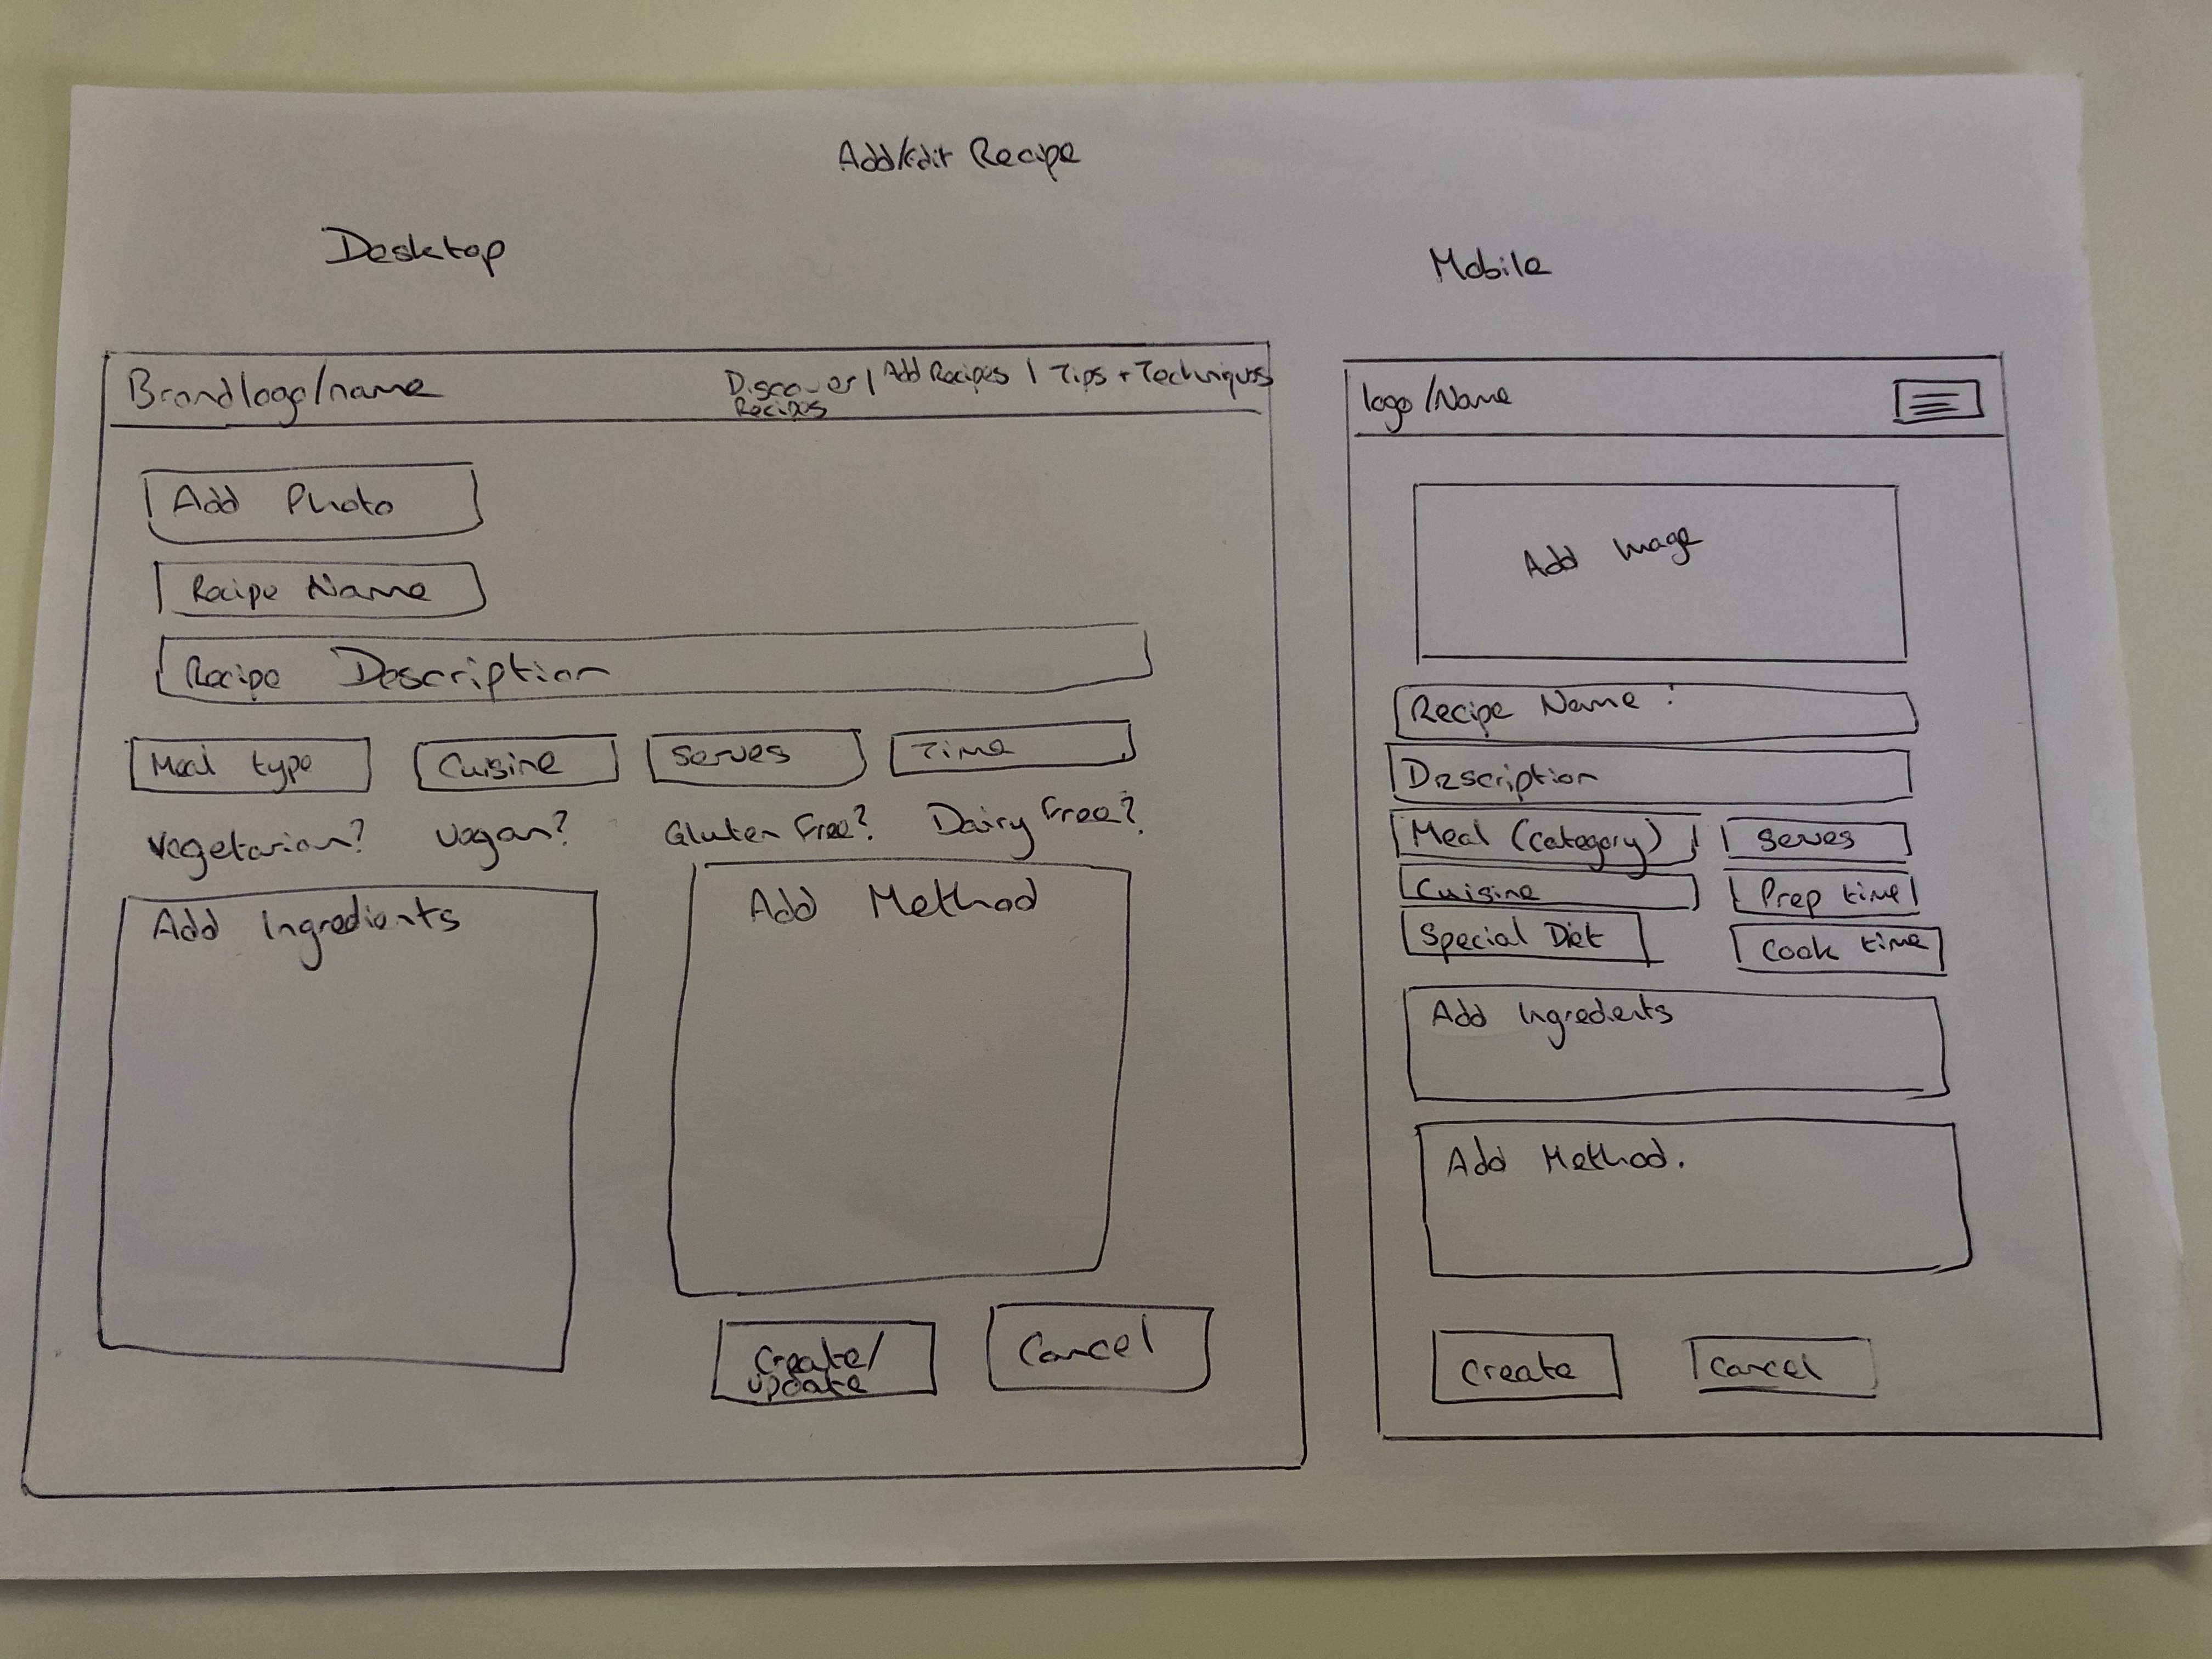 Add/Edit Recipe
Desktop
Brand logo/name
Discover | Add Recipes | Tips + Techniques
Recipes
Add Photo
Recipe Name
Recipe Description
Meal type Cuisine Serves Time
Vegetarian? Vegan? Gluten Free? Dairy Free?
Add Ingredients
Add Method
Create/
update
Cancel
Mobile
logo/Name
Add Image
Recipe Name :
Description
Meal (Category) Serves
Cuisine Prep time
Special Diet Cook time
Add Ingredients
Add Method.
Create Cancel